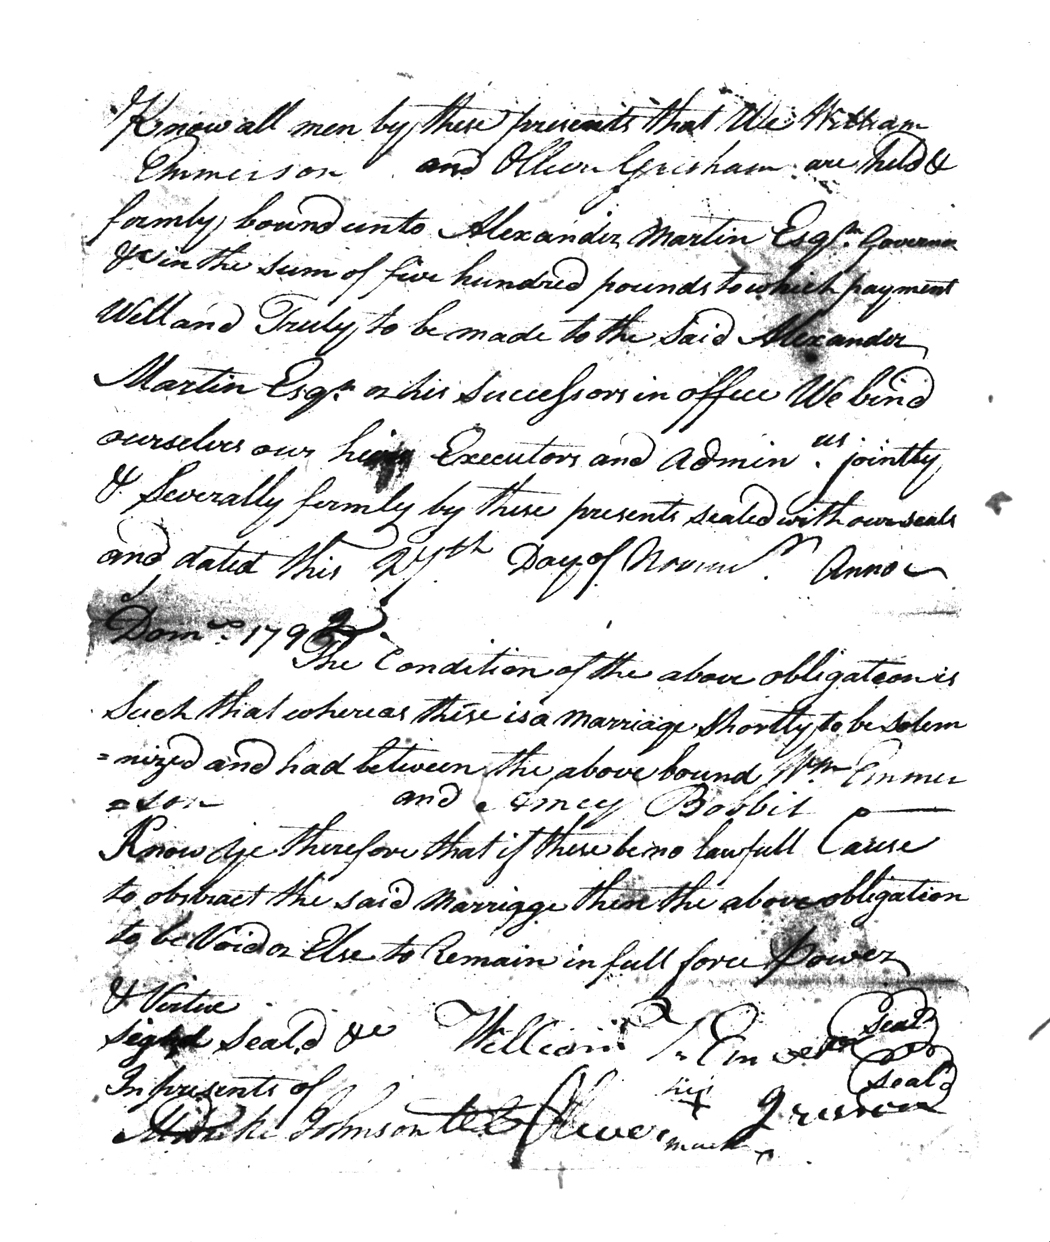 Know all men by these presents that We William
Emmerson and Olliver Grisham are held &
firmly bound unto Alexander Martin Esqr. Governor
&c in the sum of five hundred pounds to which payment
Well and Truly to be made to the said Alexander
Martin Esqr. or his Successors in office We bind
ourselves our heirs Executors and Admin.rs jointly
& Severally firmly by these presents sealed with our seals
and dated this 27th Day of Novemr. Anno
Dom. 1792
The Condition of the above obligation is
Such that whereas there is a marriage Shortly to be Solem
=nized and had between the above bound Wm Emmer
=son and Amey Boobit
Know Ye therefore that if there be no lawfull Cause
to obstruct the said Marriage then the above obligation
to be Void or Else to Remain in full force Power
& Virtue
Signd Seal.d &c William Emerson Seal
In presents of his Seal'd
Johnson Oliver X
mark